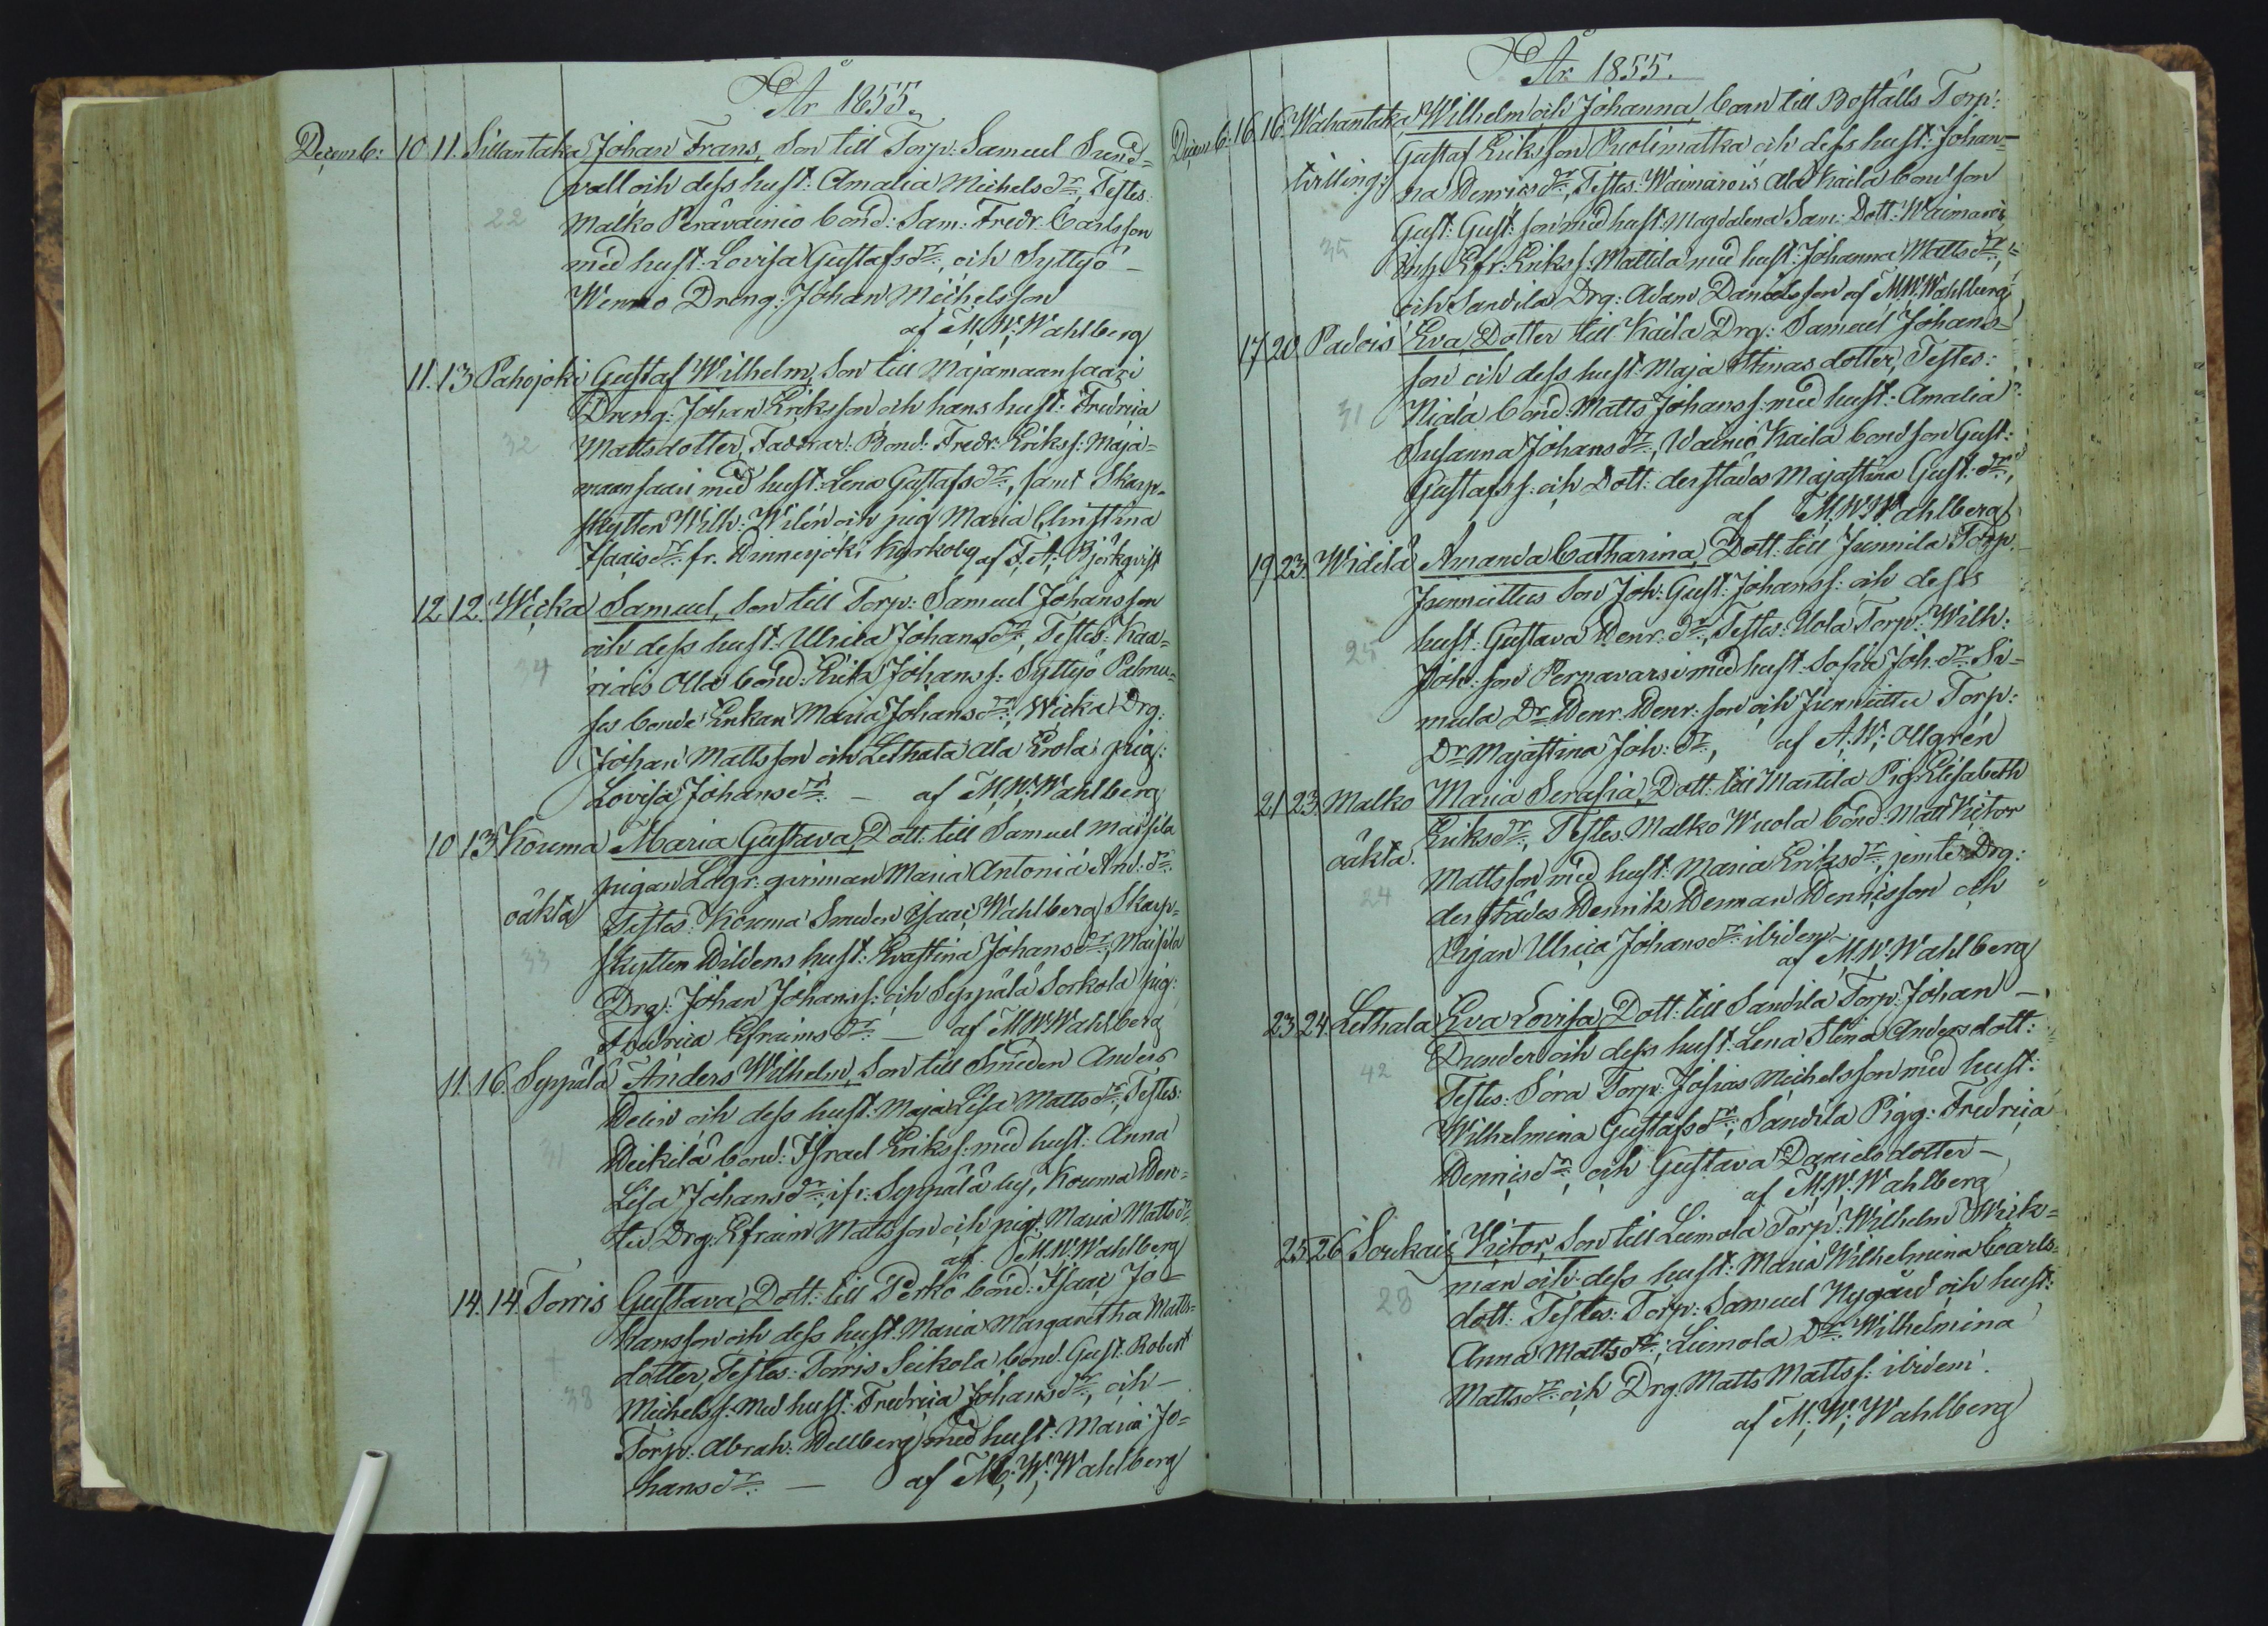 År 1855.
Decemb: 10 11. Sillantaka Johan Frans, Son till Torp: Samuel Sund=
wall och dess hust: Amalia Michelsdr:, Testes:
22 Malko Perävainio bond: Sam: Fredr: Carlsson
med hust: Lovisa Gustafsdr:, och Syttyö
Wennio Dreng: Johan Michelsson
af M. W. Wahlberg
11. 13 Pahojoki Gustaf Wilhelm, Son till Majamaansaari
Dreng: Johan Eriksson och hans hust: Fredrica
32 Mattsdotter, Faddrar: Bond: Fredr: Eriks: Maja=
maansaari med hust: Lena Gustafsdr:, samt Skarp=
skytten Wilh: Wilén och pig Maria Christina
Isaacsdr: fr. Hinnerjoki Korkoby af F. A. Björkqvist
12 12. Wicka Samuel, Son till Torp: Samuel Johansson
och dess hust: Ulrica Johansdr:, Testes: Kaa=
34 riais Olla bond: Erik Johans: Syttyö Palmu=
ses bonde Enkan Maria Johansdr:, Wicka Drg:
Johan Mattsson och Lethala Ala Erola pig:
Lovisa Johansdr: — af M. W. Wahlberg
10 13 Kouma Maria Gustava, Dott: till Samuel Maisila
pigan Lägr: qvinnan Maria Antonia And: dr:
oäkta Testes: Kouma Smeden Isaac Wahlberg Skarp=
33 skytten Hildens hust: Evastina Johansdr:, Maisila
Drg: Johan Johanss: och Seppälä Sorkola pig:
Fredrica Efraimsdr: — af M. W. Wahlberg
11. 16. Seppälä Anders Wilhelm, Son till Smeden Anders
Helin och dess hust: Maja Lisa Mattsdr:, Testes:
31 Heikilä bond: Israel Eriks: med hust: Anna
Lisa Johansdr: ifr: Seppälä by, Kouma Hen=
tu Drg: Efraim Mattsson och pig: Maria Mattsdr:
af M. W. Wahlberg
14. 14. Torris Gustava, Dott: till Perko bond: Isaac Jo=
hansson och dess hust: Maria Margaretha Matts=
dotter, Testes: Torris Seikola bond: Gust: Robert
38 Michelss: Med hust: Fredrica Johansdr:, och —
Torp: Abrah: Hellberg med hust: Maria Jo=
hansdr: — af M. W. Wahlberg
År 1855.
Decemb: 16. 16. Wahantaka Wilhelm och Johanna, barn till Boställs Torp:
tvilling: Gustaf Eriksson Puolimatka och dess hust: Johan=
na Henricsdr:, Testes: Waimarois Ala Kaila bond son
Gust: Gust: son med hust: Magdalena Sam: Dott: Waimarois
35 Efr: Eriks: Mattila med hust: Johanna Mattsdr:,
och Sandila Drg: Adam Danielsson af M. W. Wahlberg
17 20 Padois Eva, Dotter till Kaila Drg: Samuel Johans=
son och dess hust: Maja Stinas dotter, Testes:
31 Kiala bond: Matts Johans: med hust: Amalia
Susanna Johansdr:, Wainio Kaila bond son Gust:
Gustafs: och Dott: derstädes Majastina Gust: dr:,
af M. W. Wahlberg
19 23. Widilä Amanda Catharina, Dott: till Junnila Torp.
Junnuttus Son Joh: Gust: Johanss: och dess
25 hust: Gustava Henr: dr:, Testes: Uola Torp: Wilh:
Joh: son Pernavarsi med hust: Sofia Joh: dr: Si=
mula Dr: Henr. Henr: son och Junnuttu Torp:
Dr: Majastina Joh: dr:, af A. W. Allgrén
21 23 Malko Maria Serafia, Dott: till Martila Pig: Elisabeth
oäkta. Eriksdr:, Testes: Malko Wuola bond: Matt Victor
24 Mattsson med hust: Maria Eriksdr: jemte Drg:
derstädes Henrik Herman Henricsson och
Pigan Ulrica Johansdr: ibidem
af M. W. Wahlberg
23 24 Lethala Eva Lovisa, Dott: till Sandila Torp: Johan —
42 Drunder och dess hust: Lena Stina Anders dott:
Testes: Sora Torp: Josias Michelsson med hust:
Wilhelmina Gustafsdr:, Sandila Pigg: Fredrica
Henricsdr: och Gustava Daniels dotter —
af M. W. Wahlberg
25 26 Soukais Victor, Son till Liimola Torp: Wilhelm Wick=
man och dess hust: Maria Wilhelmina Carls=
28 dott: Testes: Torp: Samuel Nygård och hust:
Anna Mattsdr:, Liimola Dr: Wilhelmina
Mattsdr: och Drg. Matts Matts: ibidem.
af M. W. Wahlberg